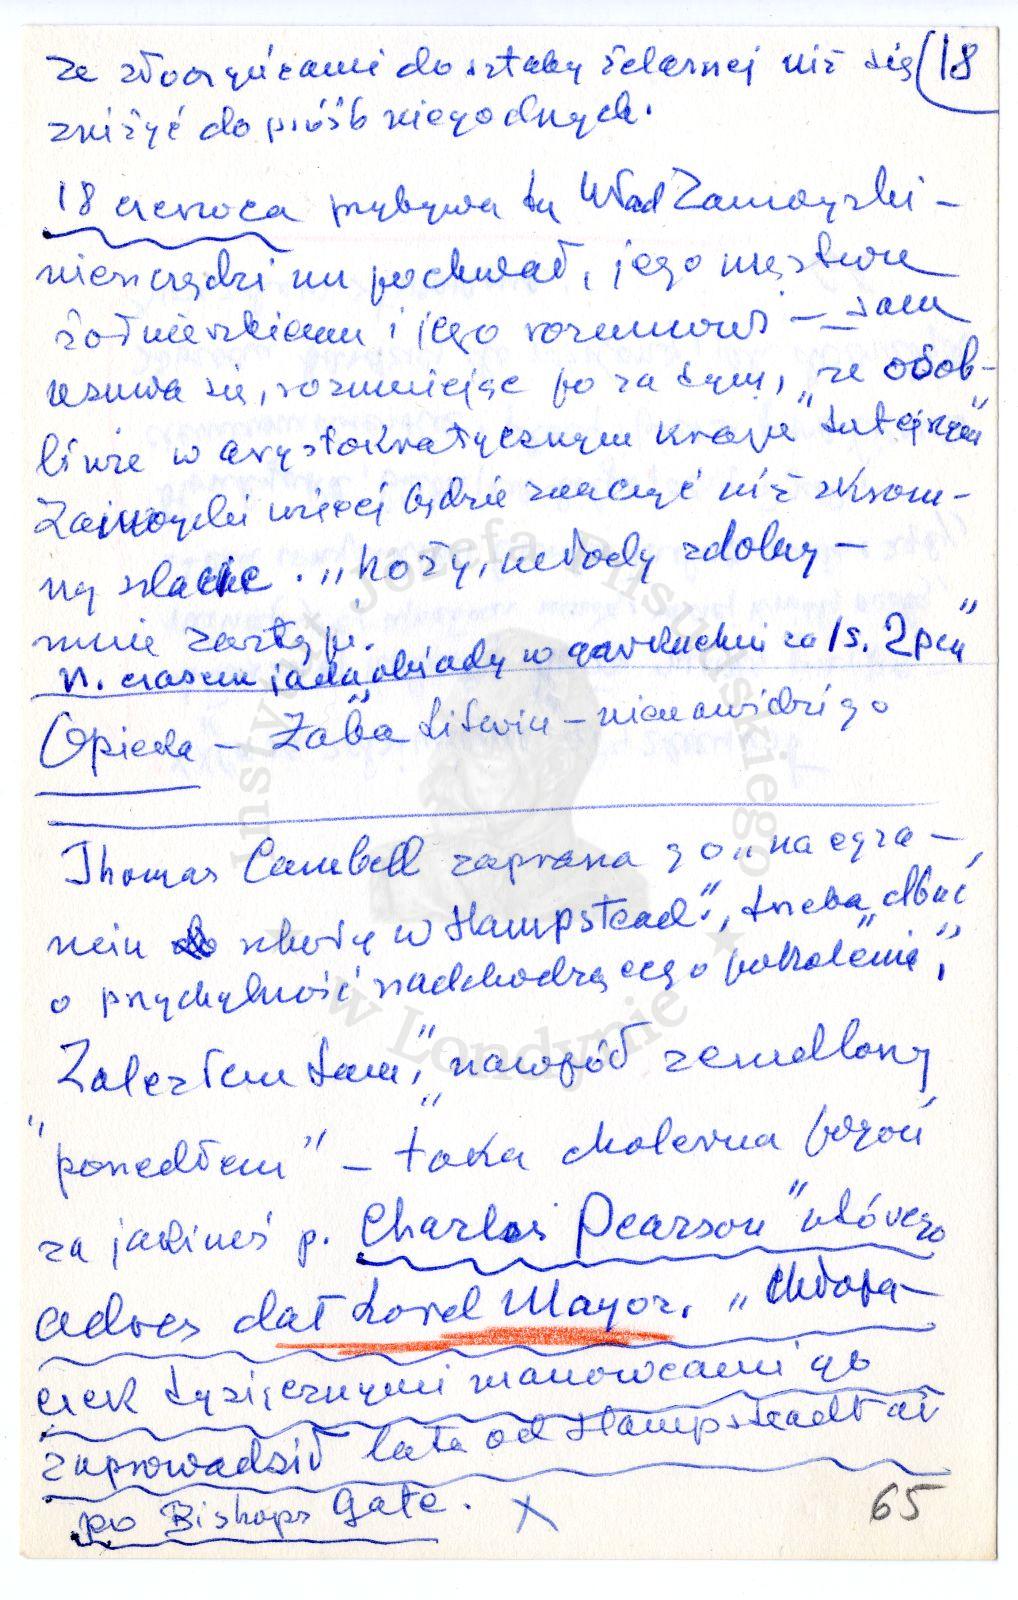 ze złoczyńcami do sztaby żelaznej niż się (18
zniżyć do próśb niegodnych.
18 czerwca przybywa tu Wład Zamoyski –
nieszczędzi mu pochwał, jego męstwu
żołnierskiemu i jego rozumowi – sam
usuwa się, rozumiejąc po za tym, "że osob-
liwie w arystokratycznym kraju "tutejszym"
Zamoyski więcej będzie znaczyć niż skrom-
ny szlachcic. "hoży, młody zdolny –
mnie zastąpi.
N. czasem jada obiady w garkuchni za 1s. 2pen"
Opieka – Żaba Litwin – nienawidzi go
Thomas Cambell zaprasza go "na egza-
min szkoły w Hampstead", "trzeba dbać
o przychylność nadchodzącego pokolenia",
Zalezłem tam", nawpół zemdlony
"poszedłem" – taka cholerna pogoń
za jakimś p. Charles Pearson "którego
adres dał Lord Mayor. "Chłopa-
czek tysięcznymi manowcami go
zaprowadził lata od Hampstead aż
po Bishops Gate. X
65
Instytut Józefa Piłsudskiego
★ w Londynie ★